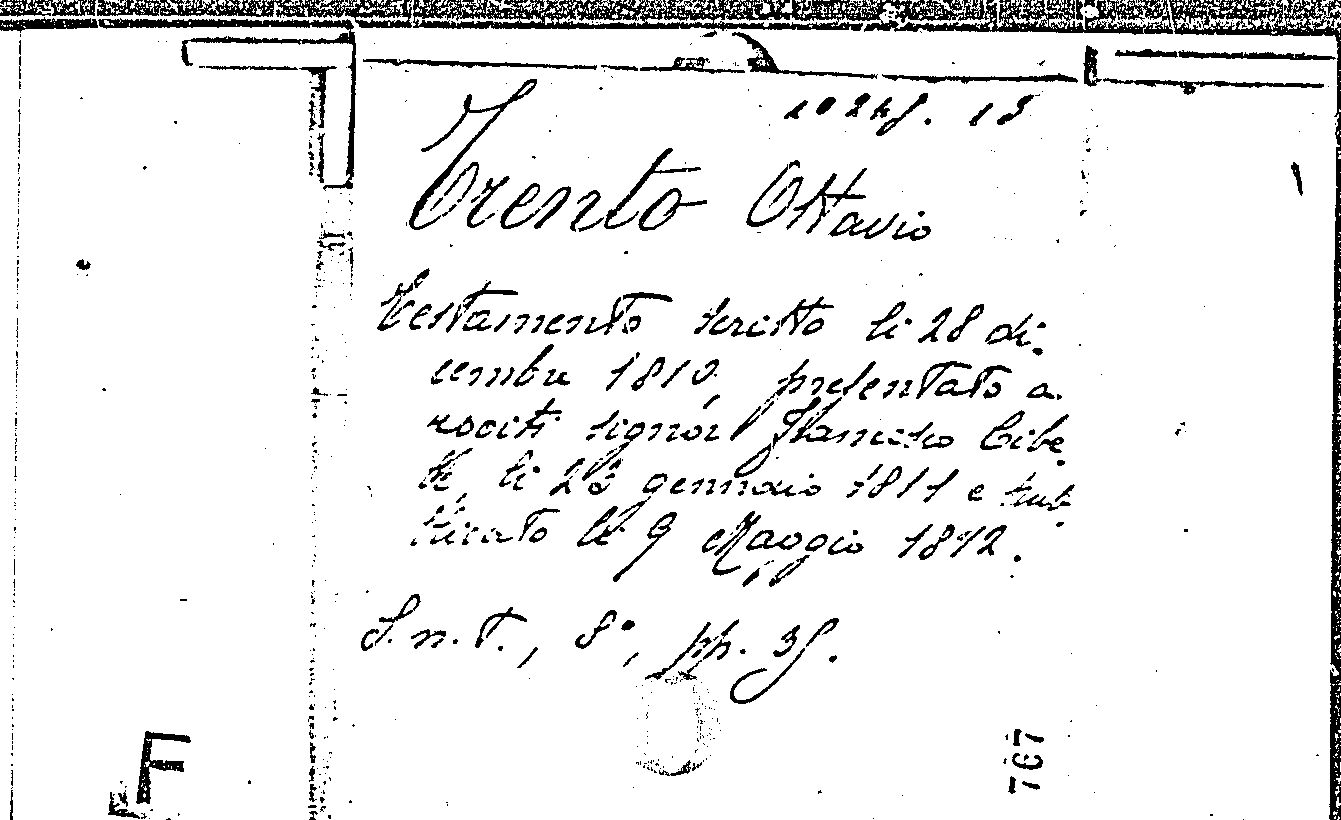 Trento Ottavio
Testamento scritto li 28 di-
cembre 1810, presentato a
rociti signor Francesco Cibe-
le, li 23 gennaio 1811 e pub-
blicato li 9 Maggio 1812.
S. n. T., 8°, pp. 35.
767
F